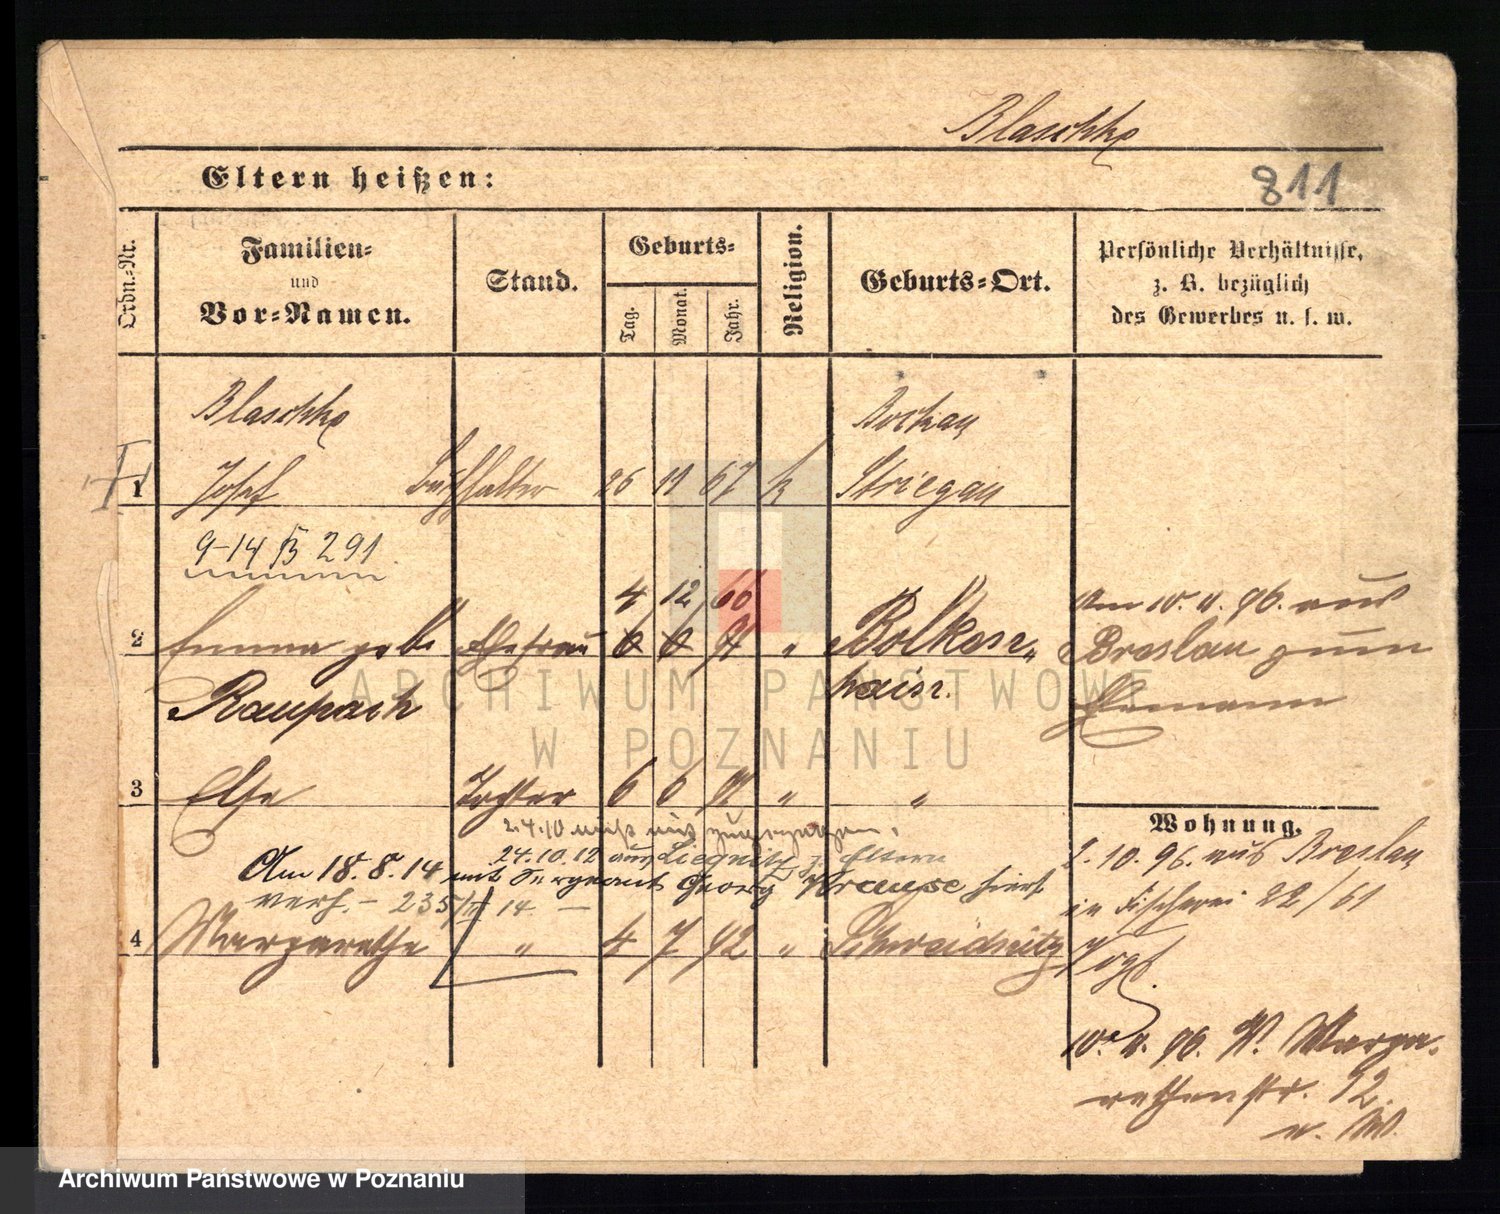 Blaschke
Eltern heißen:
811
Ordn.-Nr.
Familien-
und
Vor-Namen.
Stand.
Geburts-
Tag.
Monat.
Jahr.
Religion.
Geburts-Ort.
Persönliche Verhältnisse,
z. B. bezüglich
des Gewerbes u. s. w.
Blaschke
1 Josef Buchhalter 26 11 67 k Striegau
9-14 B 291
4 12 66
2 Emma geb. Ehefrau 6 6 91 " Bolkenhain
Raupach
Am 10. 11. 96. aus
Breslau zum
Ehemann
3 Else Tochter 6 6 91 " "
2.4.10
24.10.12 aus Liegnitz z. Eltern
Am 18.8.14 mit Sergeant Georg Krause hier
verh. - 235/14 -
4 Margarethe " 4 7 92 " Schweidnitz
Wohnung.
2.10.96. aus Breslau
in Fischerei 22/61
Vogt.
10. 11. 96. St. Marga-
rethenstr. 12.
ARCHIWUM PAŃSTWOWE
W POZNANIU
Archiwum Państwowe w Poznaniu